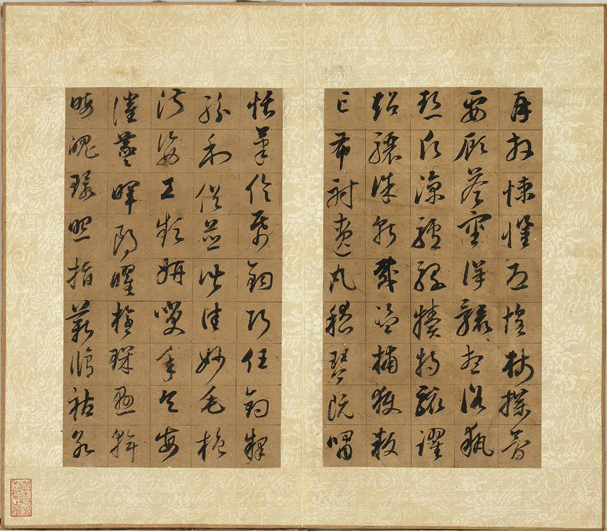 再拜悚懼恐惶牋牒簡
要顧答審詳骸想浴執
熱願涼驢騾犢特駭躍
超驤誅斬賊盜捕獲叛
亡布射遼丸嵇琴阮嘯
恬筆倫紙鈞巧任釣釋
紛利俗並皆佳妙毛施
淑姿工顰妍笑年矢每
催曦暉朗曜璇璣懸斡
晦魄環照指薪修祜永